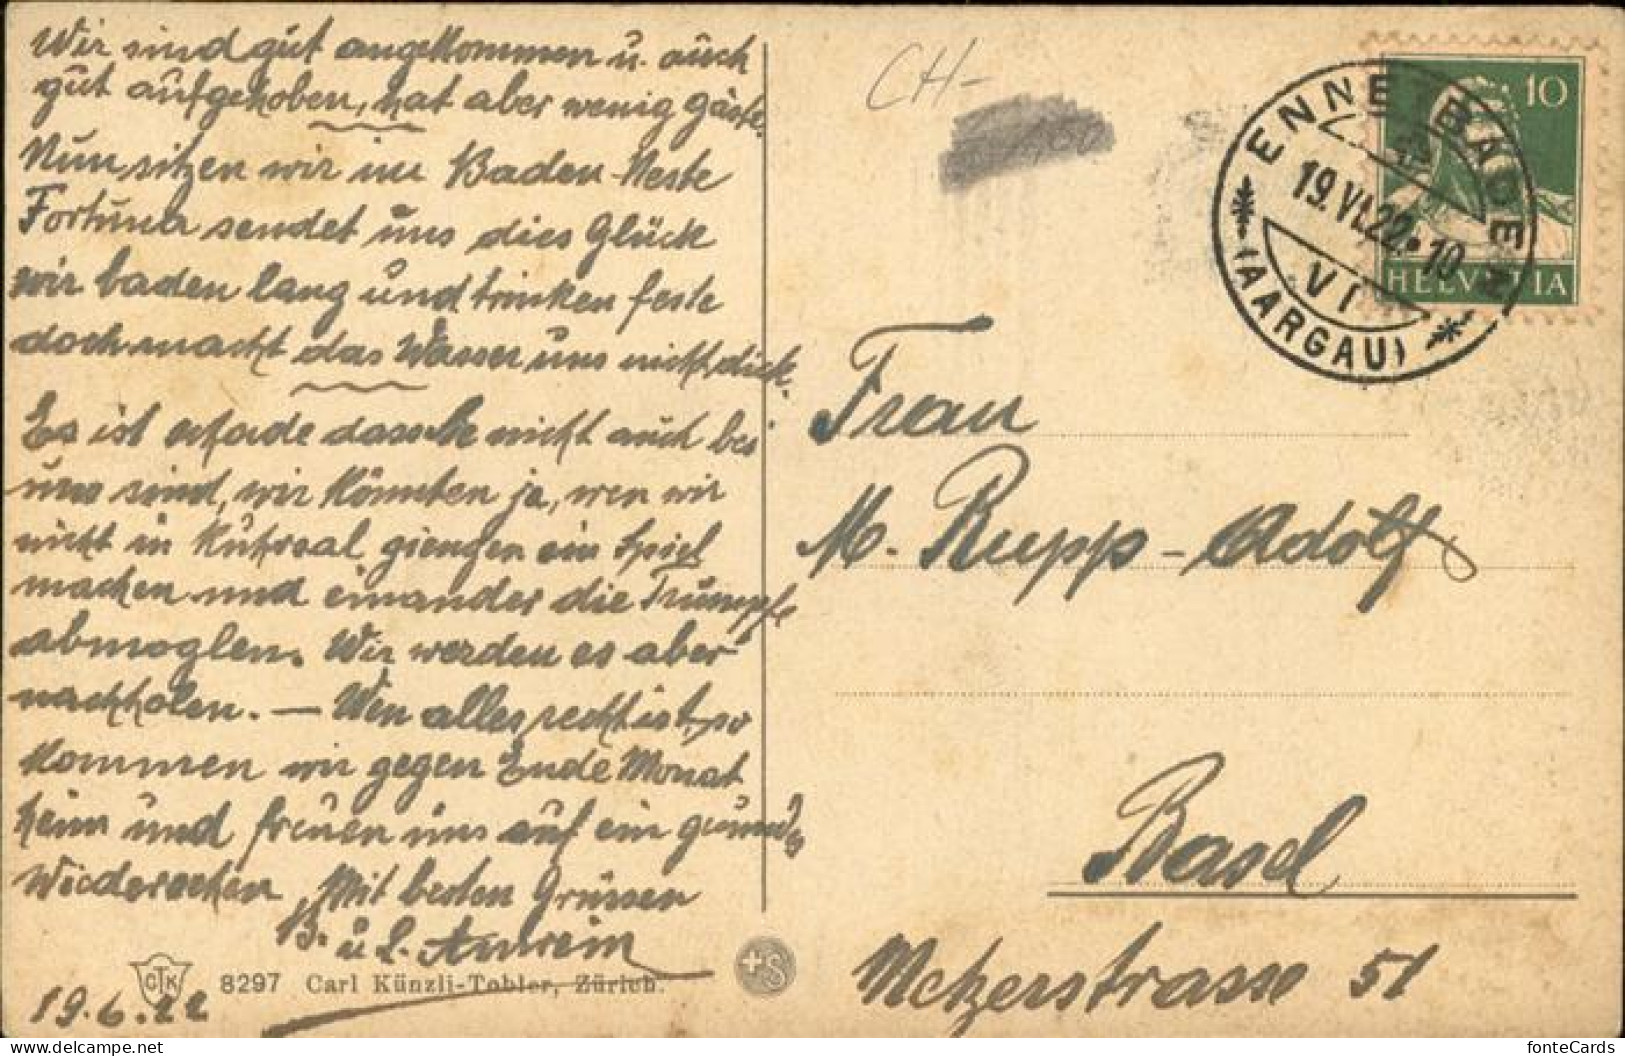 Wir sind gut angekommen u. auch
gut aufgehoben, hat aber wenig Gäste.
Nun sitzen wir im Baden-Neste
Fortuna sendet uns dies Glück
wir baden lang und trinken feste
doch macht das Wasser uns nicht dick.
Es ist schade dass nicht auch bei
uns sind, wir könnten ja, wen wir
nicht in Kuhrsaal giengen ein Spiel
machen und einander die Trümpfe
abmoglen. Wir werden es aber
nachholen. — Wen alles recht ist, so
kommen wir gegen Ende Monat
heim und freuen uns auf ein gesundes
Wiedersehen Mit besten Grüssen
B. u. L. Amrein
19.6.22
CTK
8297 Carl Künzli-Tobler, Zürich.
+S
CH-
100
10
HELVETIA
ENNETBADEN
19.VI.22.10
VI
(AARGAU)
Frau
M. Rupp-Adolf
Basel
Metzerstrasse 51
fonteCards